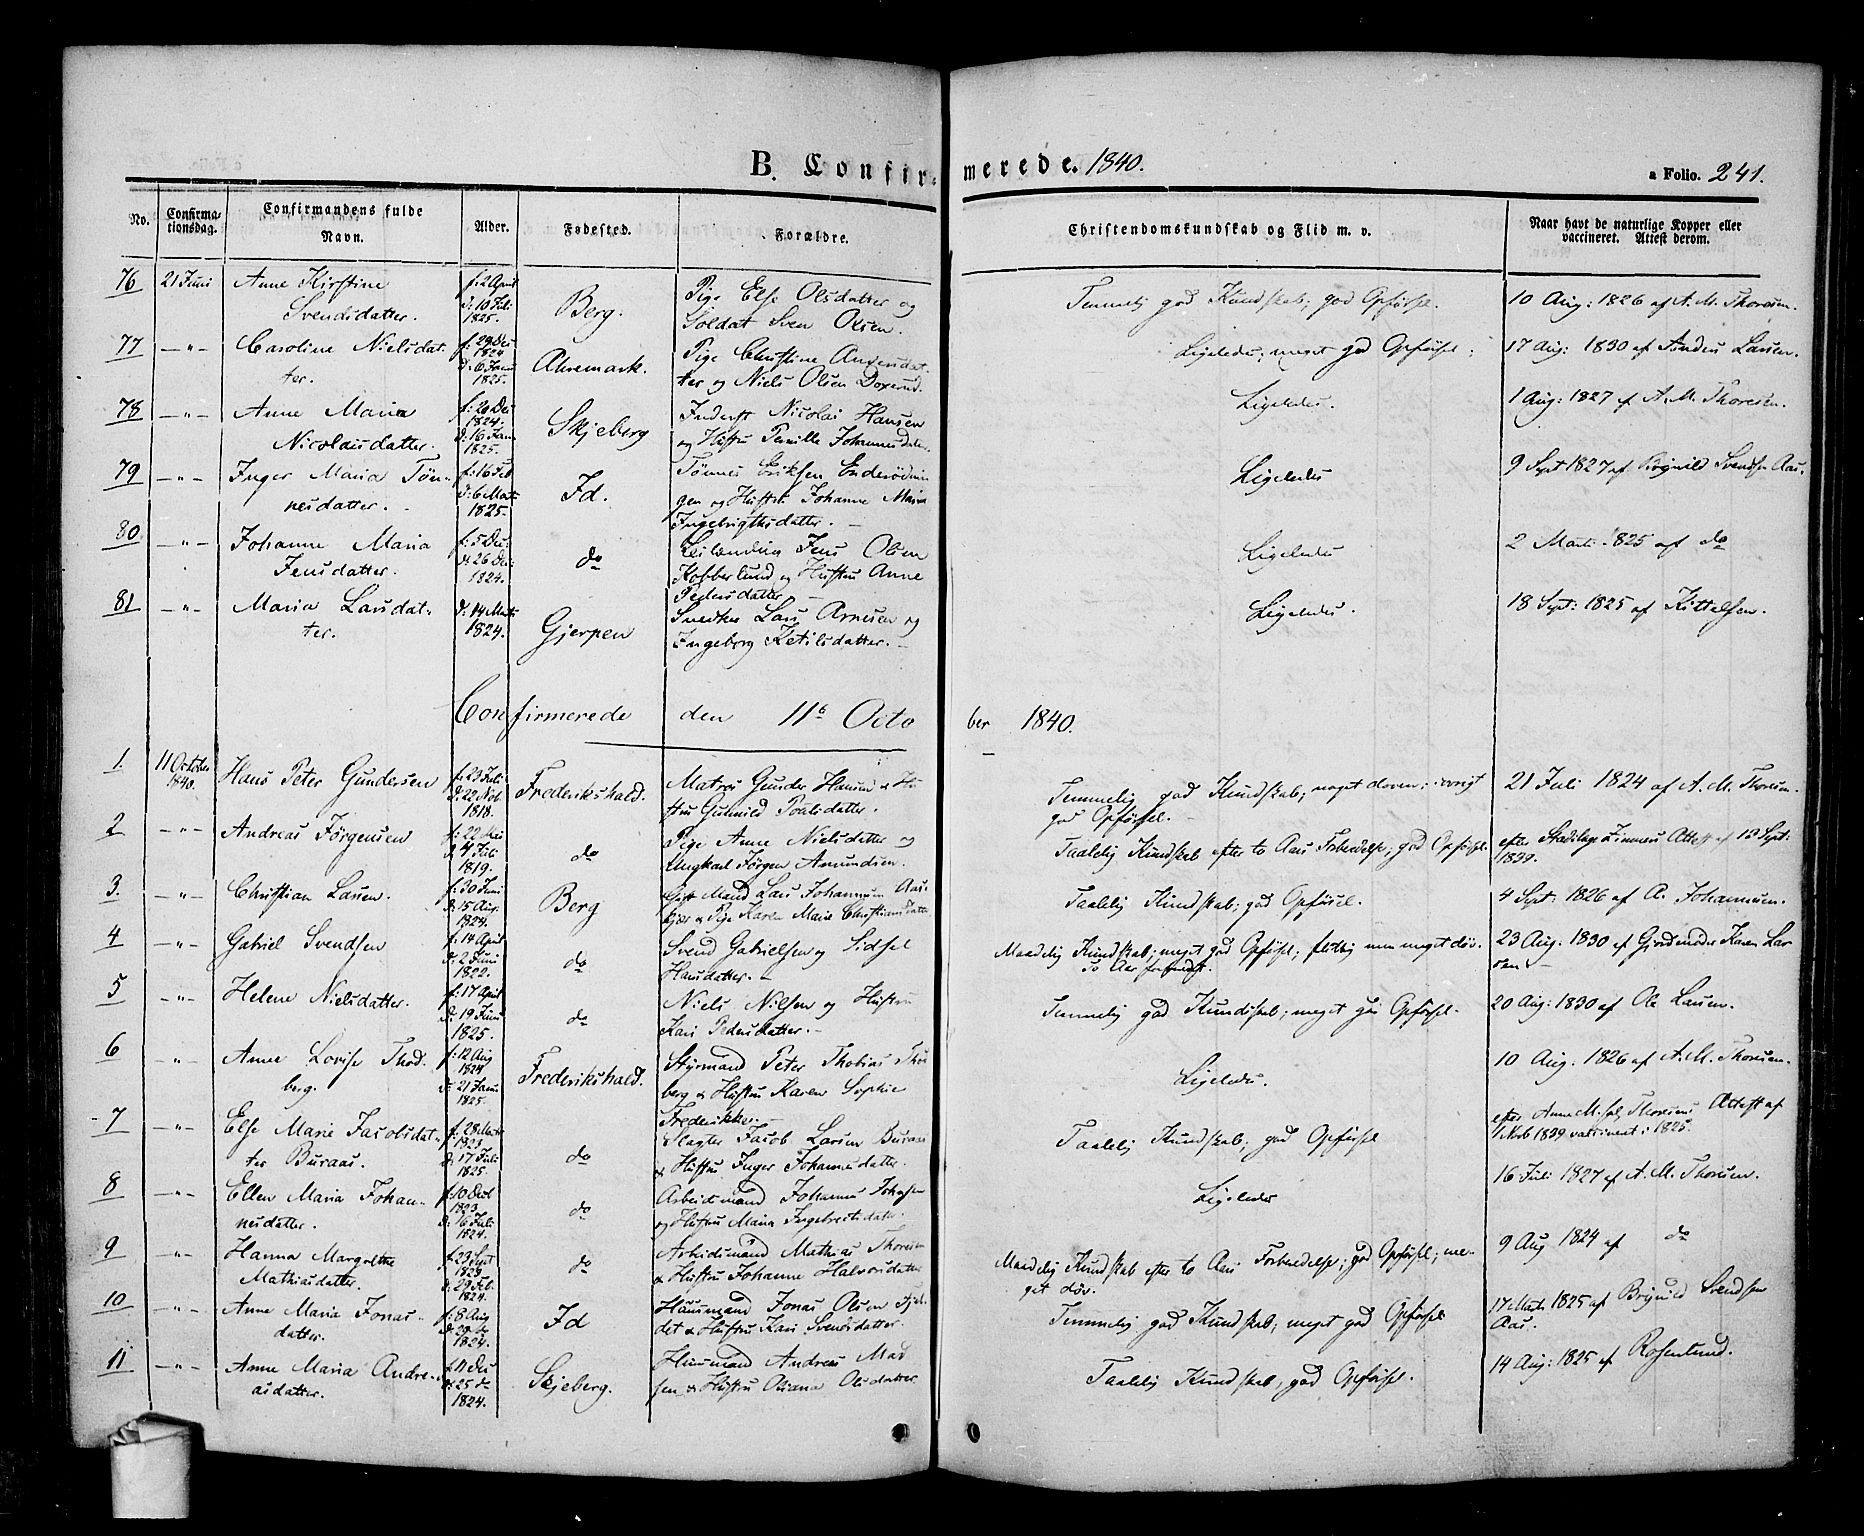 B. Confir- merede. 1840.
a Folio. 241.
No.
Confirma-
tionsdag.
Confirmandens fulde
Navn.
Alder.
Fødested.
Forældre.
Christendomskundskab og Flid m. v.
Naar havt de naturlige Kopper eller
vaccineret. Attest derom.
76 21 Juni Anne Kirstine
Svendsdatter.
f: 2 April
d: 10 Juli
1825.
Berg.
Pige Else Olsdatter og
Soldat Sven Olsen.
Temmelig god Kundskab; god Opførsel.
10 Aug: 1826 af A. M. Thoresen.
77 —"— Caroline Nielsdat-
ter.
f: 29 Dec
1824
d: 6 Janu
1825.
Ahremark.
Pige Christine Andersdat-
ter og Niels Olsen
Ligeledes; meget god Opførsel;
17 Aug: 1830 af Anders Larsen.
78 —"— Anne Maria
Nicolaisdatter.
f: 20 Dec
1824.
d: 16 Jan
1825.
Skjeberg
Inderst Nicolai Hansen
og Hustru Pernille Johannesdatter
Ligeledes.
1 Aug: 1827 af A. M. Thoresen.
79 —"— Inger Maria Tøn-
nesdatter.
f: 16 Feb
d: 6 Marts
1825.
Id.
Tønnes Eriksen Enderødnin-
gen og Hustr. Johanne Maria
Ingebrigtsdatter. —
Ligeledes
9 Sept 1827 af Brynild Svendsen Aas
80 —"— Johanne Maria
Jensdatter.
f: 5 Dec:
d: 26 Dec:
1824.
do
Jens Olsen
Kobberlund og Hustru Anne
Pedersdatter —
Ligeledes
2 Marts 1825 af do
81 —"— Maria Larsdat-
ter.
d: 14 Marts
1824.
Gjerpen
Snedker Lars Arnesen og
Ingeborg Ketilsdatter. —
Ligeledes.
18 Sept: 1825 af Kittelsen.
Confirmerede den 11te October 1840.
1. 11 October
1840.
Hans Peter Gundersen
f: 23 Juli
d: 22 Nov.
1818.
Frederikshald.
Matros Gunder Hansen & Hu-
stru Gunnild Poulsdatter.
Temmelig god Kundskab; noget doven; iøvrigt
god Opførsel. —
21 Juli 1824 af A. M. Thoresen.
2 —"— Andreas Jørgensen
f: 22 Mai
d: 4 Juli
1819.
do
Pige Anne Nielsdatter og
Ungkarl Jørgen Amundsen.
Taalelig Kundskab efter to Aars Forberedelse; god Opførsel
efter Stadslæge Zimmers Attest af 13 Sept:
1839.
3. —"— Christian Larsen.
f: 30 Juni
d: 15 Aug.
1824.
Berg
Gift Mand Lars Johannesen Aas-
kjær & Pige Karen Marie Christiansdatter
Taalelig Kundskab; god Opførsel.
4 Sept: 1826 af A. Johannesen.
4 —"— Gabriel Svendsen
f: 14 April
d: 2 Juni
1822.
do
Svend Gabrielsen og Sidsel
Hansdatter. —
Maadelig Kundskab; meget god Opførsel; flittig men meget døv.
To Aar forberedt.
23 Aug. 1830 af Gjordemoder Karen Lar-
sen —
5 —"— Helene Nielsdatter.
f: 17 April
d: 19 Juni
1825.
do
Niels Nilsen og Hustru
Kari Pedersdatter. —
Temmelig god Kundskab; meget god Opførsel.
20 Aug: 1830 af Ole Larsen.
6 —"— Anne Lovise Thod-
berg.
f: 12 Aug
1824
d: 21 Janu
1825.
Frederikshald.
Styrmand Peter Thobias Thod-
berg & Hustru Karen Sophie
Frederikke. —
Ligeledes.
10 Aug. 1826 af A. M. Thoresen.
7 —"— Else Marie Jacobsdat-
ter Buraas.
f. 28 Marts
1823
d: 17 Juli
1825.
do
Slagter Jacob Larsen Buraas
& Hustru Inger Johannesdatter.
Taalelig Kundskab; god Opførsel
efter Anne M. sal. Thoresens Attest af
1 Novb 1839 vaccineret i 1825.
8 —"— Ellen Maria Johan-
nesdatter.
f: 10 Decb
1823
d: 16 Juli
1824.
do
Arbeidsmand Johannes Johnsen
og Hustru Maria Ingebretsdatter.
Ligeledes
16 Juli 1827 af A. M. Thoresen.
9 —"— Hanna Margrethe
Mathiasdatter.
f: 23 Sept
1823
d: 29 Feb.
1824.
do
Arbeidsmand Mathias Thoresen
& Hustru Johanne Halvorsdatter
Maadelig Kundskab efter to Aars Forberedelse; god Opførsel; me-
get døv.
9 Aug 1824 af do
10 —"— Anne Maria Jonas-
datter.
f: 8 Aug
d: 30 do
1824.
Id
Huusmand Jonas Olsen Fjel-
det & Hustru Kari Svendsdatter.
Temmelig god Kundskab; meget god Opførsel
17 Marts 1825 af Brynild Svendsen
Aas.
11 —"— Anne Maria Andre-
asdatter.
f: 11 Dec
d: 25 do
1824.
Skjeberg.
Huusmand Andreas Mad-
sen & Hustru Oliana Olsdatter
Taalelig Kundskab, god Opførsel.
14 Aug: 1825 af Rosenlund.